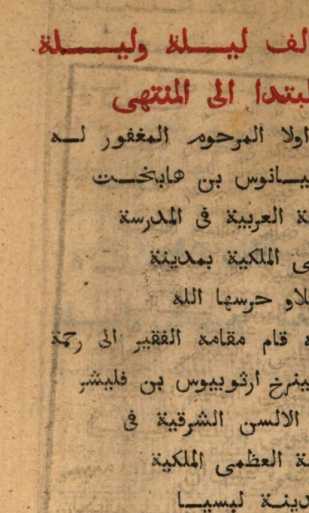 الف ليلة وليلة
لمبتدا الى المنتهى
اولا المرحوم المغفور له
يانوس بن هابخت
ة العربية فى المدرسة
ى الملكية بمدينة
لاو حرسها الله
قام مقامه الفقير الى رحمة
ينرخ ارثوبيوس بن فليشر
الالسن الشرقية فى
ة العظمى الملكية
دينة لبسيا